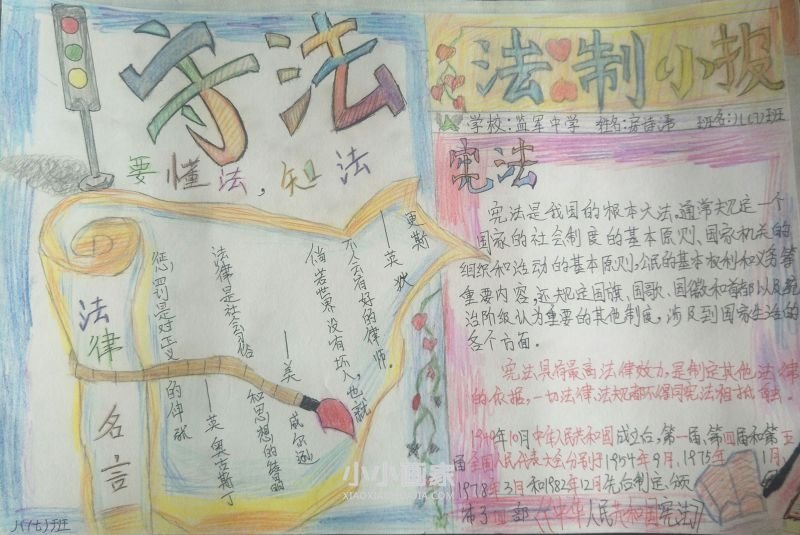 守法
要懂法,知法
法律名言
倘若世界没有坏人,也就
不会有好的律师。
——英 狄更斯
法律是社会习俗
和思想的结晶
——美 威尔逊
惩罚是对正义的伸张
——英 奥古斯丁
八(七)班
法制小报
学校:监军中学 姓名:房诗沛 班名:八(7)班
宪法
宪法是我国的根本大法,通常规定一个
国家的社会制度的基本原则、国家机关的
组织和活动的基本原则,公民的基本权利和义务等
重要内容,还规定国旗、国歌、国徽和首都以及统
治阶级认为重要的其他制度,涉及到国家生活的
各个方面。
宪法具有最高法律效力,是制定其他法律
的依据,一切法律、法规都不得同宪法相抵触。
1949年10月中华人民共和国成立后,第一届、第四届和第五
届全国人民代表大会分别于1954年9月、1975年1月、
1978年3月和1982年12月先后制定、颁
布了四部《中华人民共和国宪法》
小小画家
XIAOXIAOHUAJIA.COM